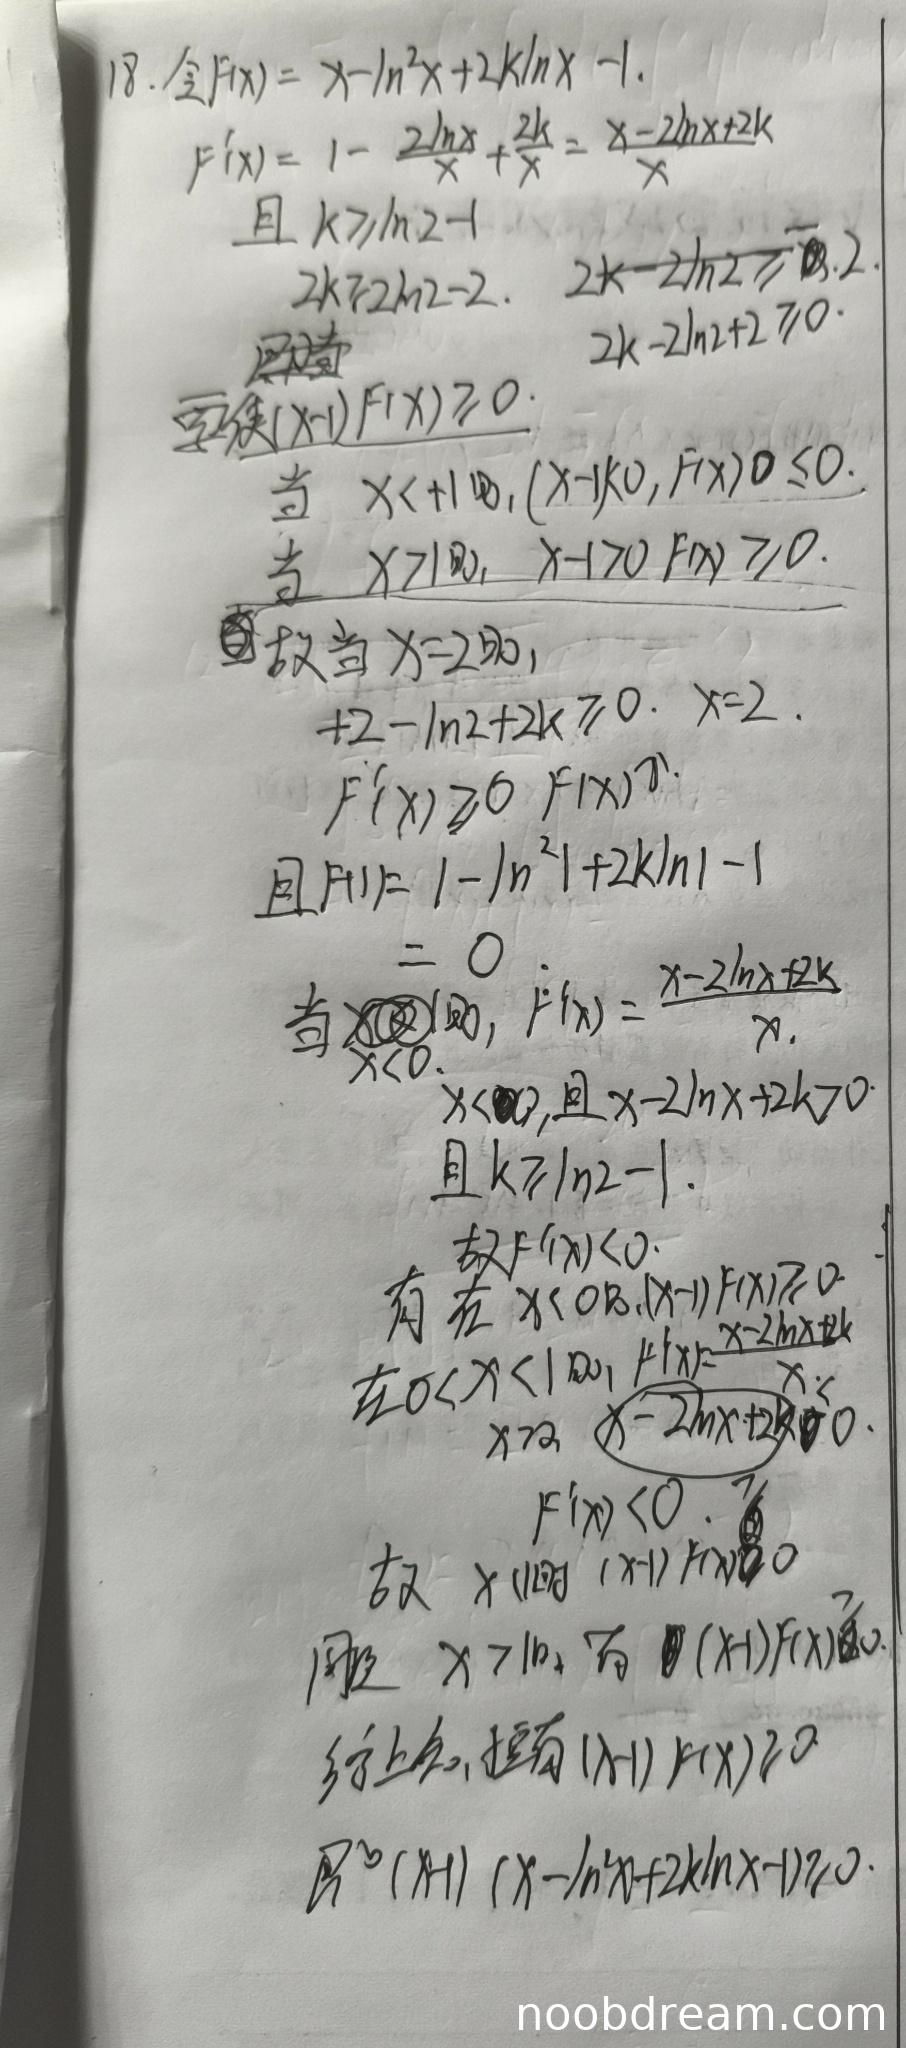 18. 令F(x) = x-ln²x+2klnx -1.
F'(x) = 1 - 2lnx/x + 2k/x = x-2lnx+2k/x
且 k≥ln2-1
2k≥2ln2-2. 2k-2ln2≥-2.
2k-2ln2+2≥0.
要使(x-1)F(x)≥0.
当 x<+1时, (x-1)<0, F(x)0≤0.
当 x>1时, x-1>0 F(x)≥0.
故当x=2时,
+2-ln2+2k≥0. x=2.
F'(x)≥0 F(x)↑.
且F(1)= 1-ln²1+2kln1-1
= 0.
当 时, F'(x) = x-2lnx+2k/x.
x<0.
x<0, 且x-2lnx+2k>0.
且k≥ln2-1.
故F'(x)<0.
有在 x<0时,(x-1)F(x)≥0
在0<x<1时, F'(x)=x-2lnx+2k/x.
x-2lnx+2k<0.
F'(x)<0.
故 x<1时 (x-1)F(x)≥0
同理 x>1时, 有 (x-1)F(x)≥0.
综上知, (x-1)F(x)≥0
即 (x-1)(x-ln²x+2klnx-1)≥0.
noobdream.com